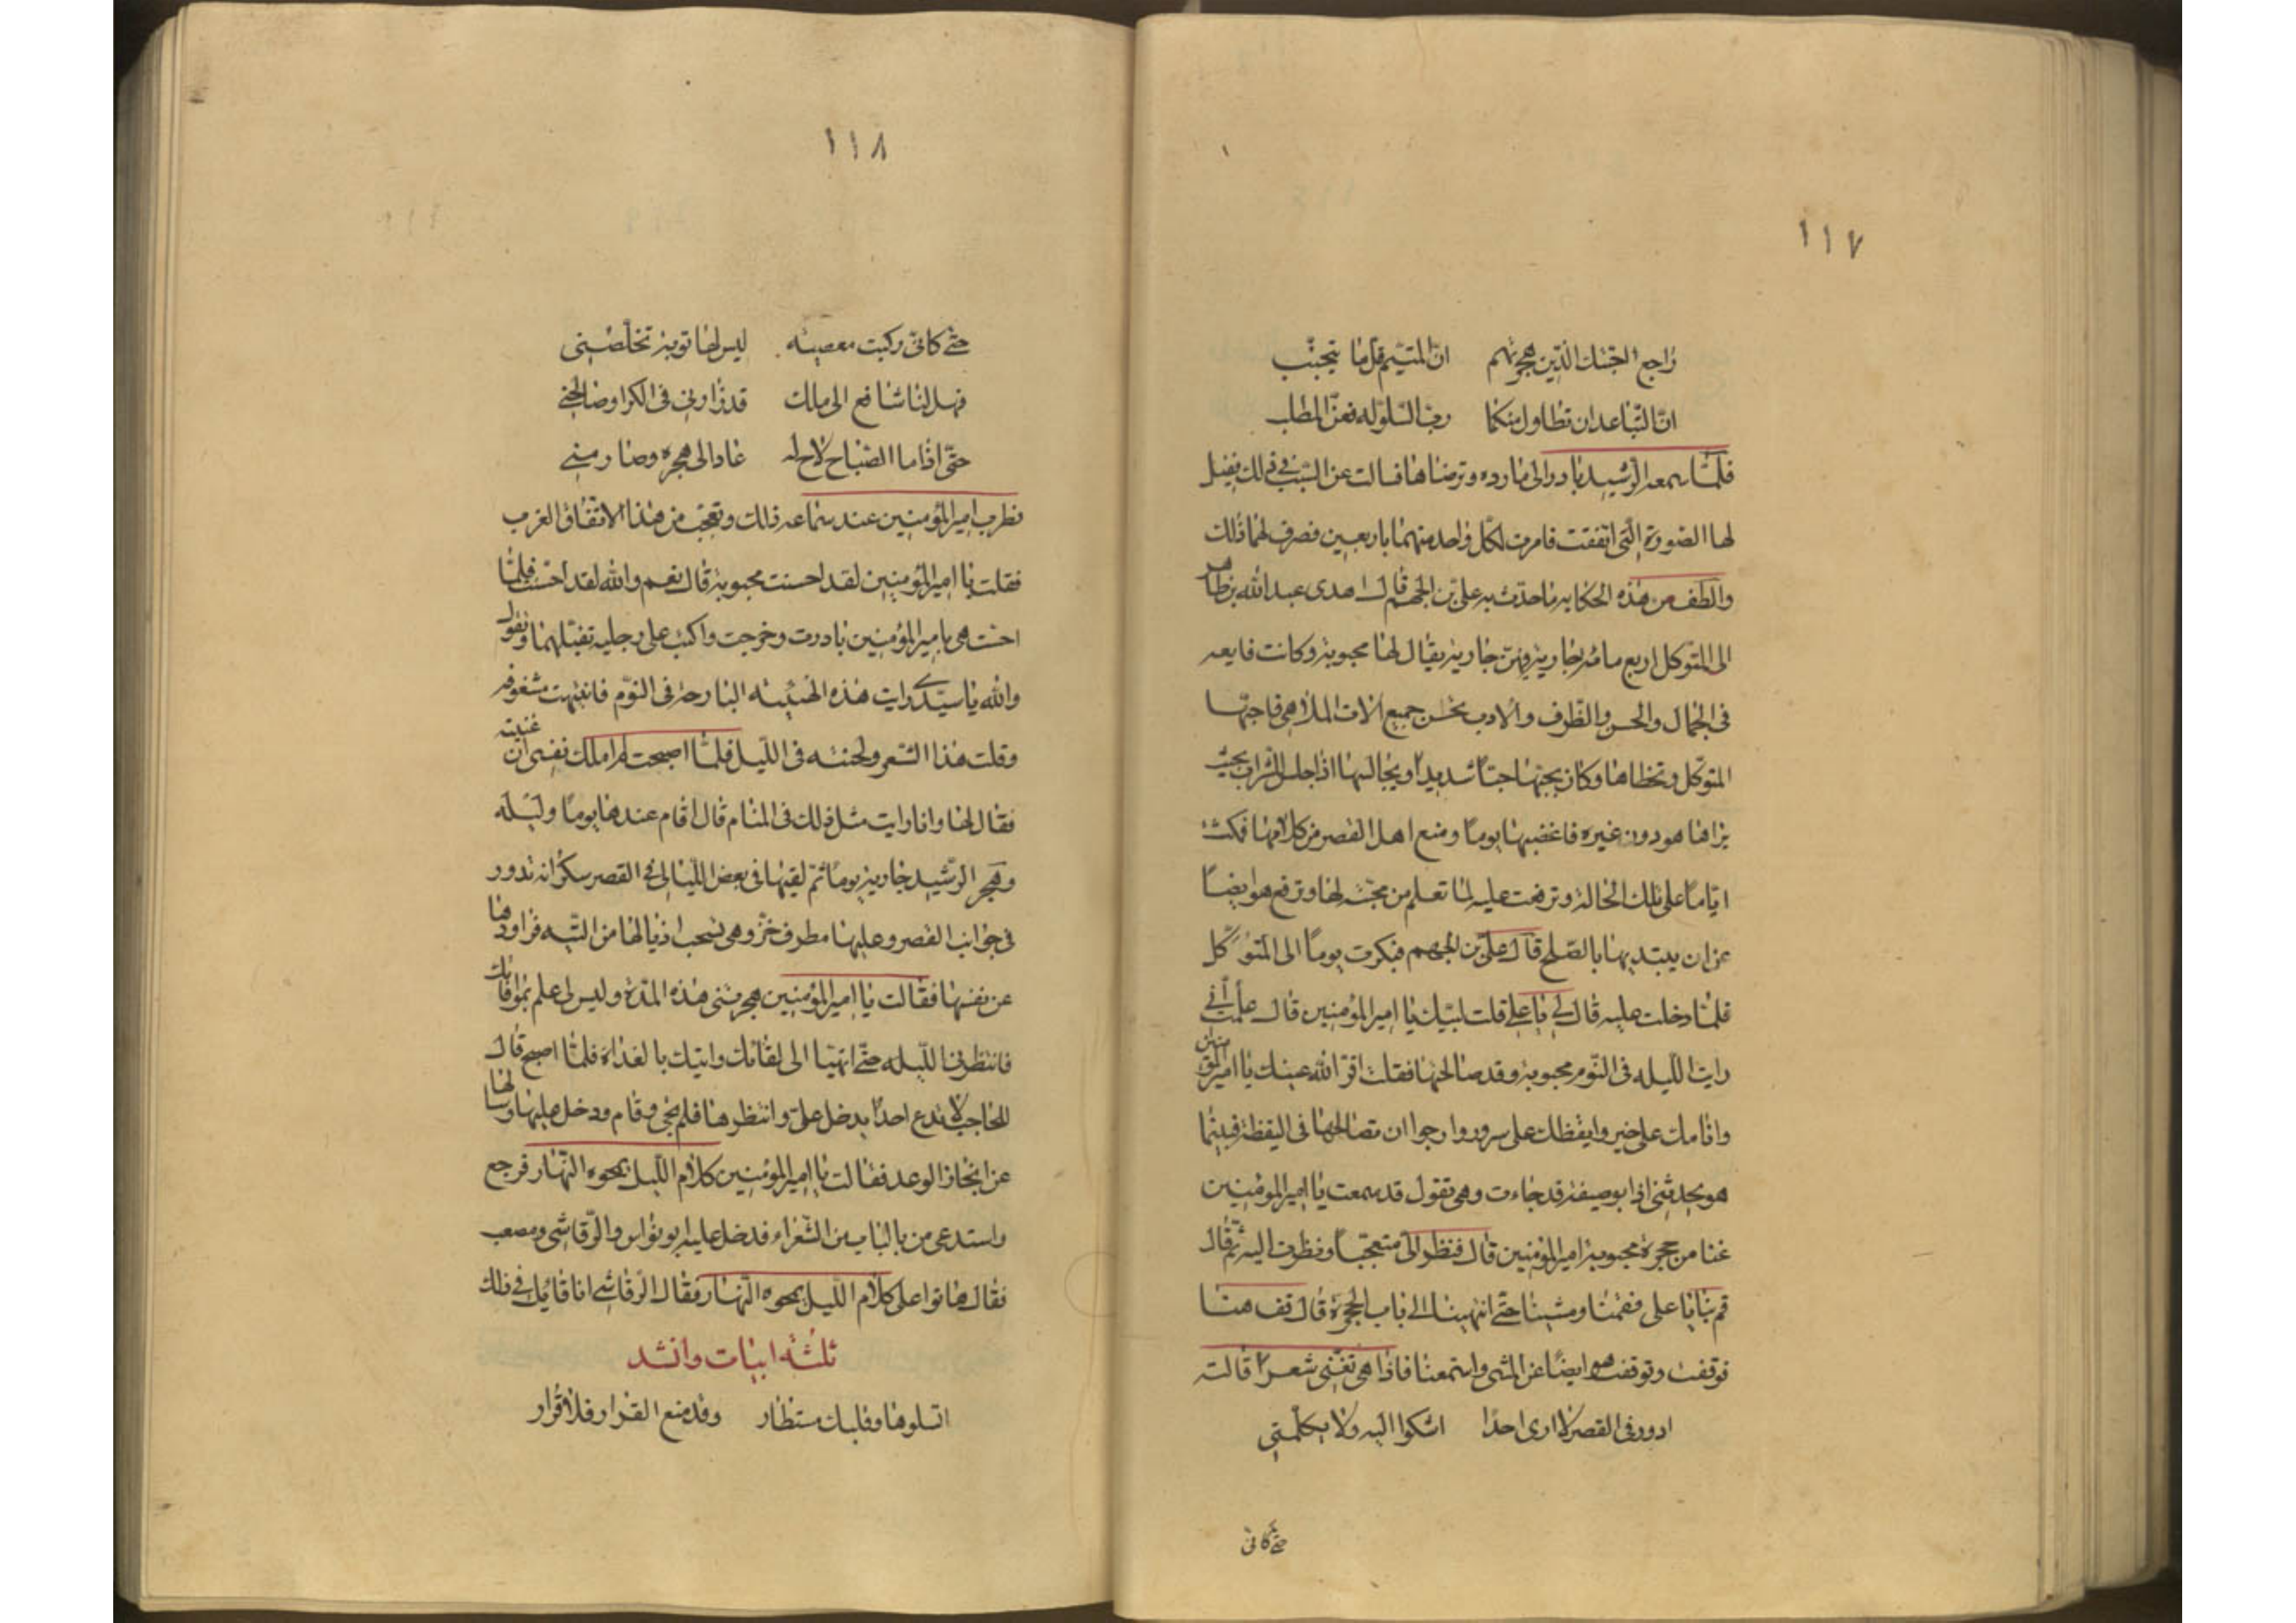 ١١٧
راجع احبتك الذين هجرتهم ان المتيم قل ما يتجنب
ان التباعد ان تطاول منكما دب السلو له فعز المطلب
فلما سمعه الرشيد بادر الى مارده وترضاها فسالت عن السبب في ذلك فقيل
لها الصورة التى اتفقت فامرت لكل واحد منهما باربعين فصرف لهما ذلك
والطف من هذه الحكايه ما حدث به على بن الجهم قال اهدى عبد الله بن طاهر
الى المتوكل اربع مائه جارية وفيهن جارية يقال لها محبوبة وكانت فايعه
فى الجمال والحسن والظرف والادب تحسن جميع آلات الملاهى فاحبها
المتوكل وتحظاها وكان يحبها حبا شديدا ويجالسها اذا جلس للشراب بحيث
يراها هو دون غيره فاغضبها يوما ومنع اهل القصر من كلامها فمكثت
اياما على تلك الحالة وترفعت عليه لما تعلم من محبته لها وترفع هو ايضا
عن ان يبتديها بالصلح قال على بن الجهم فبكرت يوما الى المتوكل
فلما دخلت عليه قال لى يا على قلت لبيك يا امير المؤمنين قال علمت أنى
رايت الليله فى النوم محبوبة وقد صالحتها فقلت اقر الله عينك يا امير المؤمنين
واقامك على خير وايقظك على سرور وارجو ان تصالحها فى اليقظة فبينما
هو يحدثنى اذا بوصيفة قد جاءت وهى تقول قد سمعت يا امير المؤمنين
غنا من حجرة محبوبة امير المؤمنين قال فنظر الى متعجبا ونظرت اليه ثم قال
قم بنا يا على فقمنا ومشينا حتى انتهينا الى باب الحجرة قال قف هنا
فوقفت وتوقف هو ايضا عن المشى واستمعنا فاذا هى تغنى شعرا قالته
ادور فى القصر لا ارى احدا اشكوا اليه ولا يكلمنى
حتى كانى
١١٨
حتى كانى ركبت معصيته ليس لها توبة تخلصنى
فهل لنا شافع الى ملك قد زارنى فى الكرا وصالحنى
حتى اذا ما الصباح لاح له عاد الى هجره وصارمنى
فطرب امير المؤمنين عند سماعه ذلك وتعجب من هذا الاتفاق الغريب
فقلت يا امير المؤمنين لقد احسنت محبوبة قال نعم والله لقد احسنت فلما
احست هى بامير المؤمنين بادرت وخرجت واكبت على رجليه تقبلهما وتقول
والله يا سيدى رايت هذه الهيئه البارحة فى النوم فانتبهت مشغوفه
وقلت هذا الشعر ولحنته فى الليل فلما اصبحت لم املك نفسى ان غنيته
فقال لها وانا رايت مثل ذلك فى المنام قال اقام عندها يوما وليله
وهجر الرشيد جارية يوما ثم لقيها فى بعض الليالى فى القصر سكرانه تدور
فى جوانب القصر وعليها مطرف خز وهى تسحب اذيالها من التيه فراودها
عن نفسها فقالت يا امير المؤمنين هجرتنى هذه المدة وليس لى علم بموافاتك
فانتظرنى الليله حتى اتهيا الى لقائك واتيك بالغداة فلما اصبح قال
للحاجب لا تدع احدا يدخل على وانتظرها فلم تجى وقام ودخل عليها وسالها
عن انجاز الوعد فقالت يا امير المؤمنين كلام الليل يمحوه النهار فرجع
واستدعى من بالباب من الشعراء فدخل عليه ابو نواس والرقاشى ومصعب
فقال هاتوا على كلام الليل يمحوه النهار فقال الرقاشى انا قائل فى ذلك
ثلثه ابيات وانشد
اتسلوها وقلبك مستطار وقد منع القرار فلا قرار